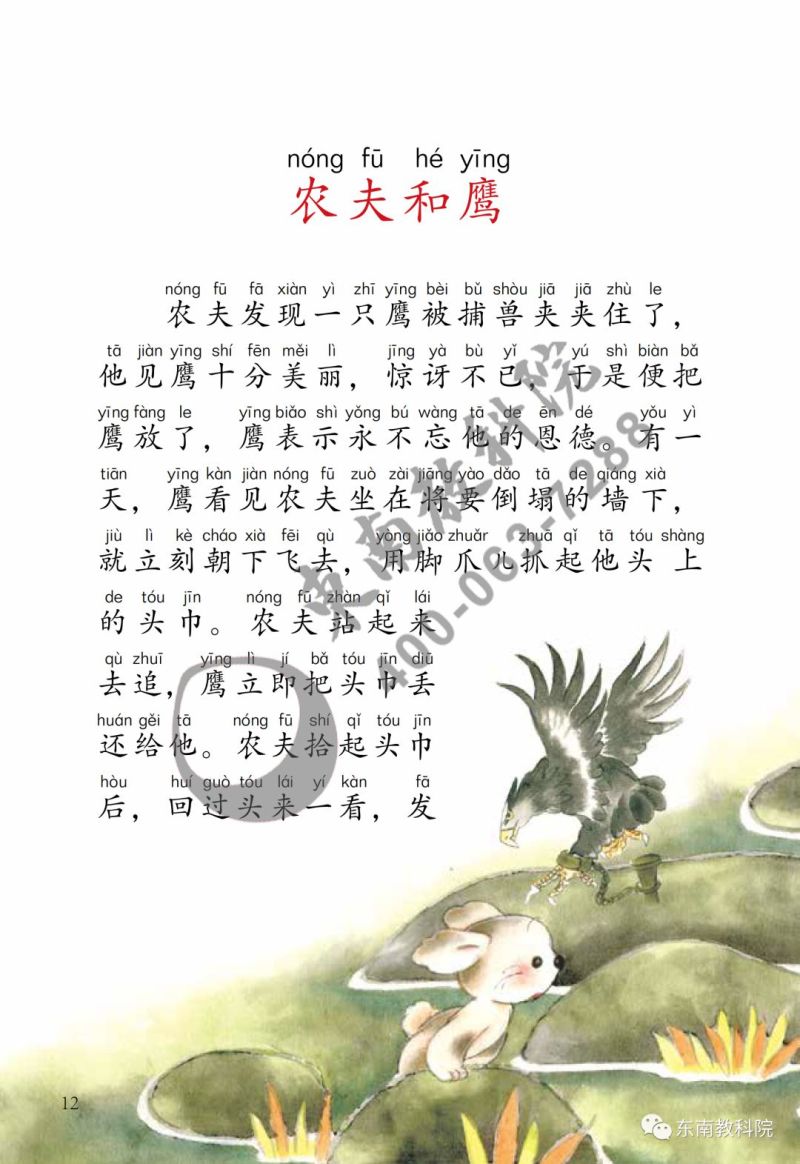 nóng fū hé yīng
农夫和鹰
nóng fū fā xiàn yì zhī yīng bèi bǔ shòu jiā jiā zhù le
农夫发现一只鹰被捕兽夹夹住了，
tā jiàn yīng shí fēn měi lì jīng yà bù yǐ yú shì biàn bǎ
他见鹰十分美丽，惊讶不已，于是便把
yīng fàng le yīng biǎo shì yǒng bú wàng tā de ēn dé yǒu yì
鹰放了，鹰表示永不忘他的恩德。有一
tiān yīng kàn jiàn nóng fū zuò zài jiāng yào dǎo tā de qiáng xià
天，鹰看见农夫坐在将要倒塌的墙下，
jiù lì kè cháo xià fēi qù yòng jiǎo zhuǎr zhuā qǐ tā tóu shàng
就立刻朝下飞去，用脚爪儿抓起他头上
de tóu jīn nóng fū zhàn qǐ lái
的头巾。农夫站起来
qù zhuī yīng lì jí bǎ tóu jīn diū
去追，鹰立即把头巾丢
huán gěi tā nóng fū shí qǐ tóu jīn
还给他。农夫拾起头巾
hòu huí guò tóu lái yí kàn fā
后，回过头来一看，发
東南教科院
400-063-7288
12
东南教科院